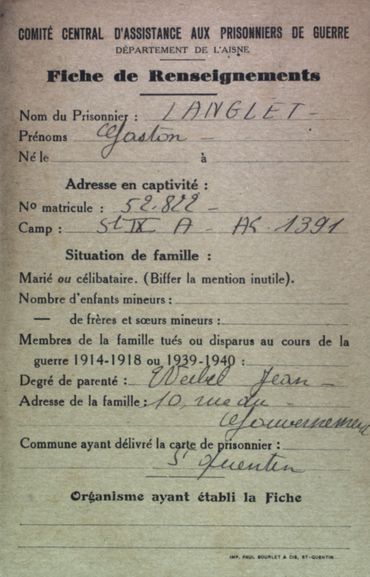 COMITÉ CENTRAL D'ASSISTANCE AUX PRISONNIERS DE GUERRE
DÉPARTEMENT DE L'AISNE
Fiche de Renseignements
Nom du Prisonnier : LANGLET -
Prénoms Gaston -
Né le à
Adresse en captivité :
No matricule : 52.822 -
Camp : St IX A - AK 1391
Situation de famille :
Marié ou célibataire. (Biffer la mention inutile).
Nombre d'enfants mineurs :
— de frères et sœurs mineurs :
Membres de la famille tués ou disparus au cours de la
guerre 1914-1918 ou 1939-1940 :
Degré de parenté : Jean -
Adresse de la famille : 10, rue du
Gouvernement
Commune ayant délivré la carte de prisonnier :
St Quentin
Organisme ayant établi la Fiche
IMP. PAUL BOURLET & CIE, ST-QUENTIN.